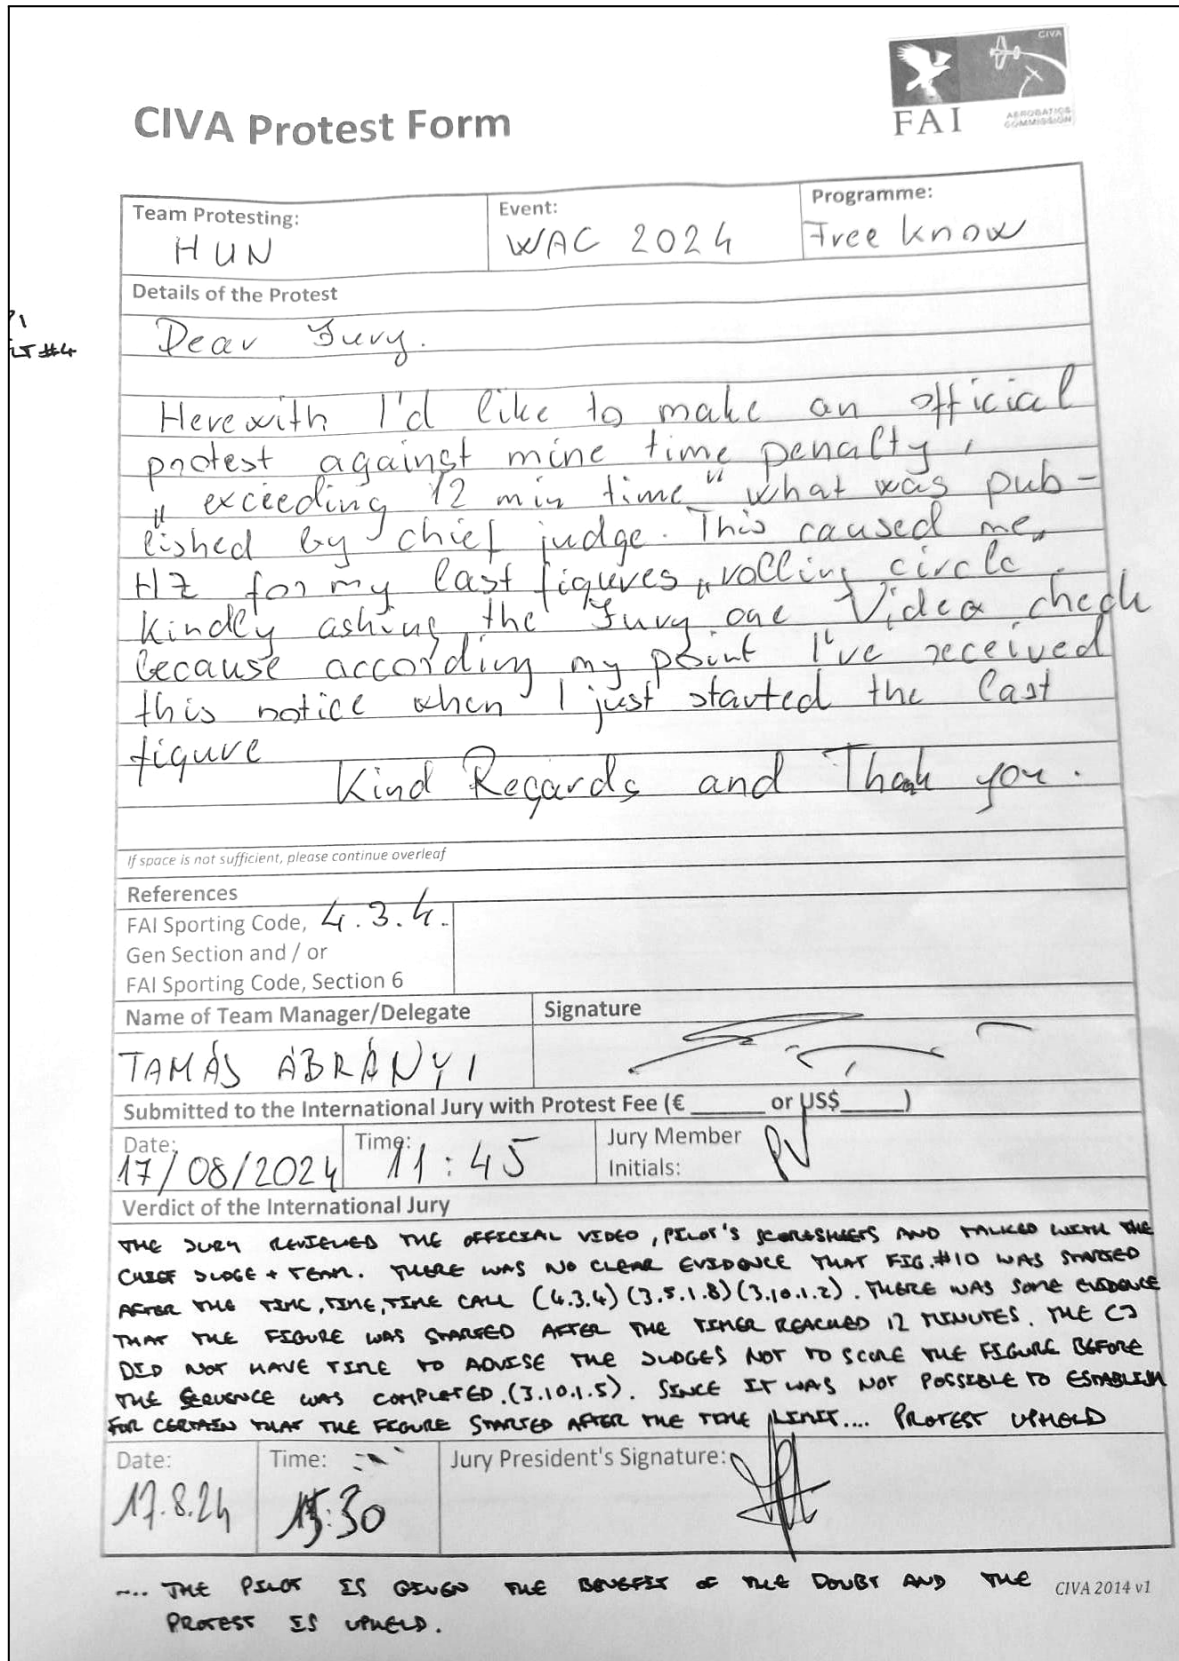 CIVA
FAI
AEROBATICS
COMMISSION
CIVA Protest Form
Team Protesting:
HUN
Event:
WAC 2024
Programme:
Free know
Details of the Protest
LT #4
Dear Jury.
Herewith I'd like to make an official
protest against mine time penalty,
„ exceeding 12 min time" what was pub-
lished by chief judge. This caused me
HZ for my last figures „rolling circle".
Kindly asking the Jury one Video check
because according my point I've received
this notice when I just started the last
figure
Kind Regards and Thank you.
If space is not sufficient, please continue overleaf
References
FAI Sporting Code, 4.3.4.
Gen Section and / or
FAI Sporting Code, Section 6
Name of Team Manager/Delegate
TAMÁS ÁBRÁNYI
Signature
Submitted to the International Jury with Protest Fee (€ ______ or US$_____)
Date:
17/08/2024
Time:
11:45
Jury Member
Initials: PV
Verdict of the International Jury
THE JURY REVIEWED THE OFFICIAL VIDEO, PILOT'S SCORESHEETS AND TALKED WITH THE
CHIEF JUDGE + TEAM. THERE WAS NO CLEAR EVIDENCE THAT FIG.#10 WAS STARTED
AFTER THE TIME, TIME, TIME CALL (4.3.4) (3.5.1.8) (3.10.1.2). THERE WAS SOME EVIDENCE
THAT THE FIGURE WAS STARTED AFTER THE TIMER REACHED 12 MINUTES. THE CJ
DID NOT HAVE TIME TO ADVISE THE JUDGES NOT TO SCORE THE FIGURE BEFORE
THE SEQUENCE WAS COMPLETED. (3.10.1.5). SINCE IT WAS NOT POSSIBLE TO ESTABLISH
FOR CERTAIN THAT THE FIGURE STARTED AFTER THE TIME LIMIT.... PROTEST UPHELD
Date:
17.8.24
Time:
15:30
Jury President's Signature:
.... THE PILOT IS GIVEN THE BENEFIT OF THE DOUBT AND THE
PROTEST IS UPHELD.
CIVA 2014 v1